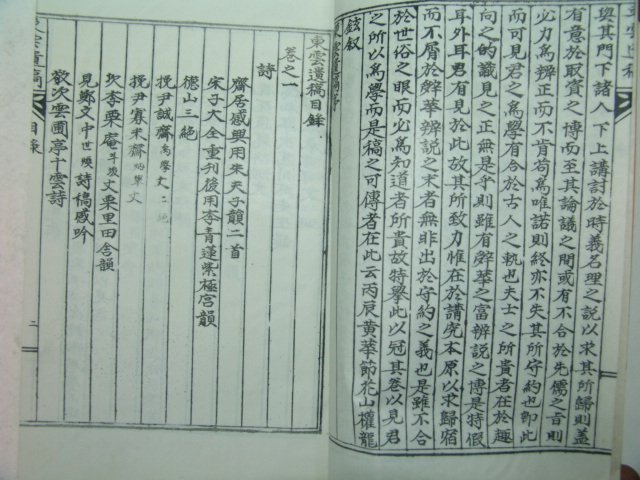 與其門下諸人上下講討於時義名理之說以求其所歸則盖
有意於取資之博而至其論議之間或有不合於先儒之旨則
必力爲辨正而不肯苟爲唯諾則終亦不失其所守約也卽此
而可見君之爲學有合於古人之執也夫士之所貴者在於趣
向之的識見之正無是乎則雖有辭華之富辨說之博是特假
耳外耳君有見於此故其所致力惟在於講究本原以求歸宿
而不屑於辭華辨說之末者無非出於守約之義也是雖不合
於世俗之眼而必爲知道者所貴故特擧此以冠其卷以見君
之所以爲學而是稿之可傳者在此云丙辰黃華節花山權龍
鉉叙
東雲遺稿目錄
卷之一
詩
齋居感興用朱夫子韻二首
宋子大全重刊後用李青蓮紫極宮韻
德山三絶
挽尹誠齋
挽尹寒齋
次李栗庵丈栗里田舍韻
見鄭文中詩稿感吟
敬次雲圃亭千雲詩
目錄
二